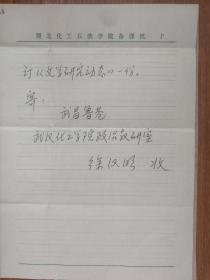 湖北化工石油学院备课纸
订《文学研究动态》一份。
寄:
武昌鲁巷
武汉化工学院政治教研室
徐汉明 收